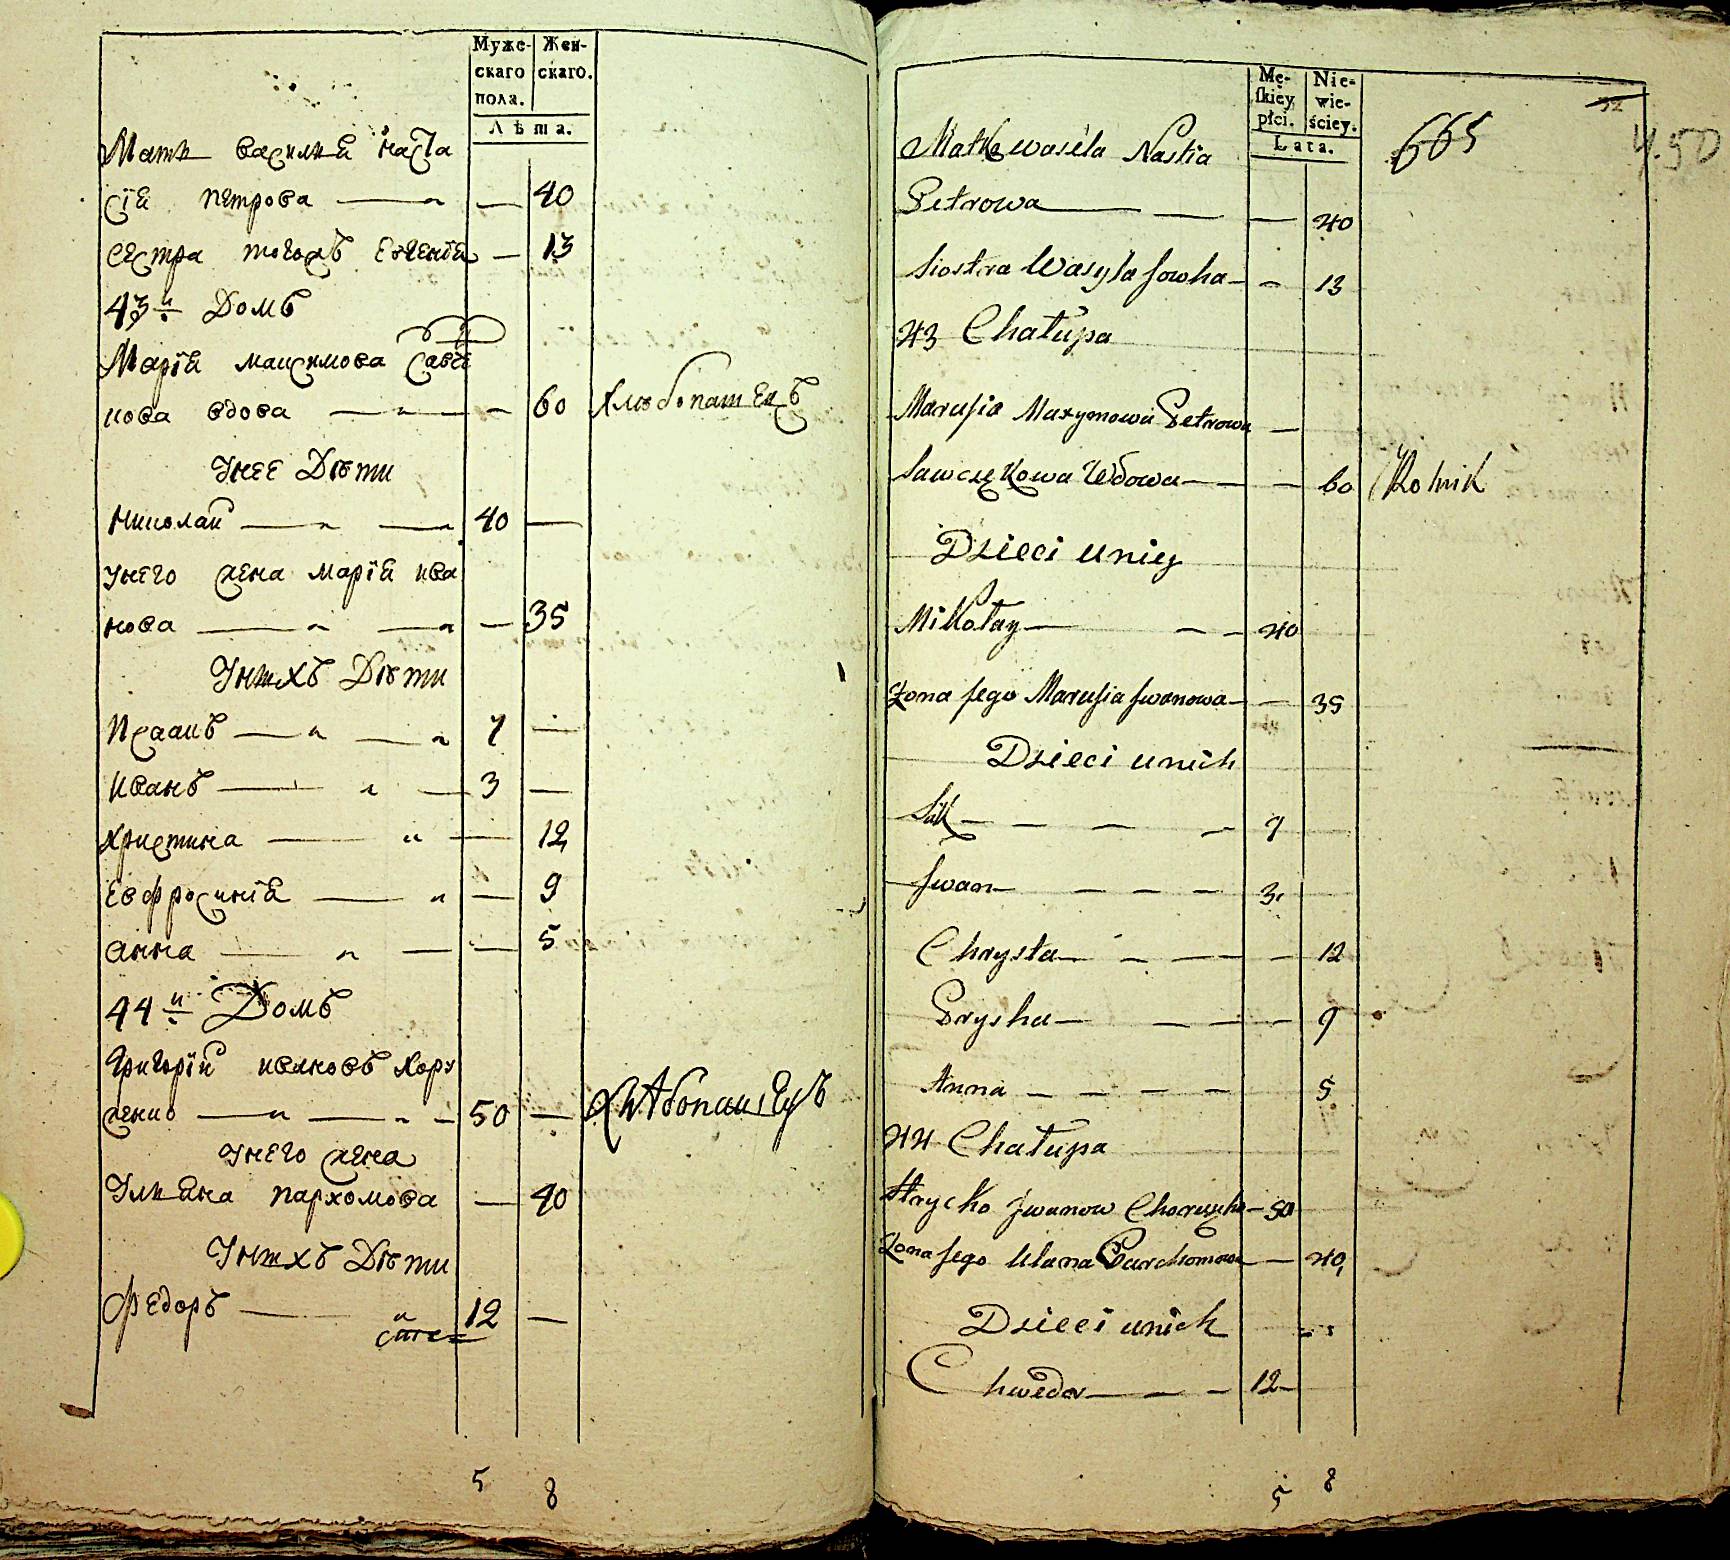 Муже- Жен-
скаго скаго.
пола.
Лѣта.
Мати василия наста
сія петрова — — 40
сестра тогожъ Евгенія — 13
43й Домъ
Марія максимова савчу
кова вдова — — 60 Хлѣбопашецъ
Унее Дѣти
Николай — — 40 —
Унего жена Марія ива
нова — — — 35
Унихъ Дѣти
Исаакъ — — 7 —
Иванъ — — 3 —
Христина — — 12
Евфросинія — — 9
Анна — — 5
44й Домъ
Григорій ивановъ Хору
женко — — 50 — Хлѣбопашецъ
Унего жена
Ульяна пархомова — 40
Унихъ Дѣти
Федоръ — 12 —
5 8
Mę- Nie-
skiey wie-
płci. ściey.
Lata.
32
665
4.50
Matka wasila Nastia
Petrowa — — — 40
Siostra Wasyla Jowha — — 13
43 Chałupa
Marusia Maxymowa Petrowa —
Sawczukowa Wdowa — — 60 Rolnik
Dzieci uniey
Mikołay — — — 40
Żona Jego Marusia Jwanowa — — 35
Dzieci unich
Sak — — — — 7
Jwan — — — 3
Chrysta — — — — — 12
Pryska — — — — 9
Anna — — — — 5
44 Chałupa
Hrycko Jwanow Chorużko — 50
Żona Jego Ulana Parchomowa — 40
Dzieci unich
Chwedor — — — 12 —
5 8